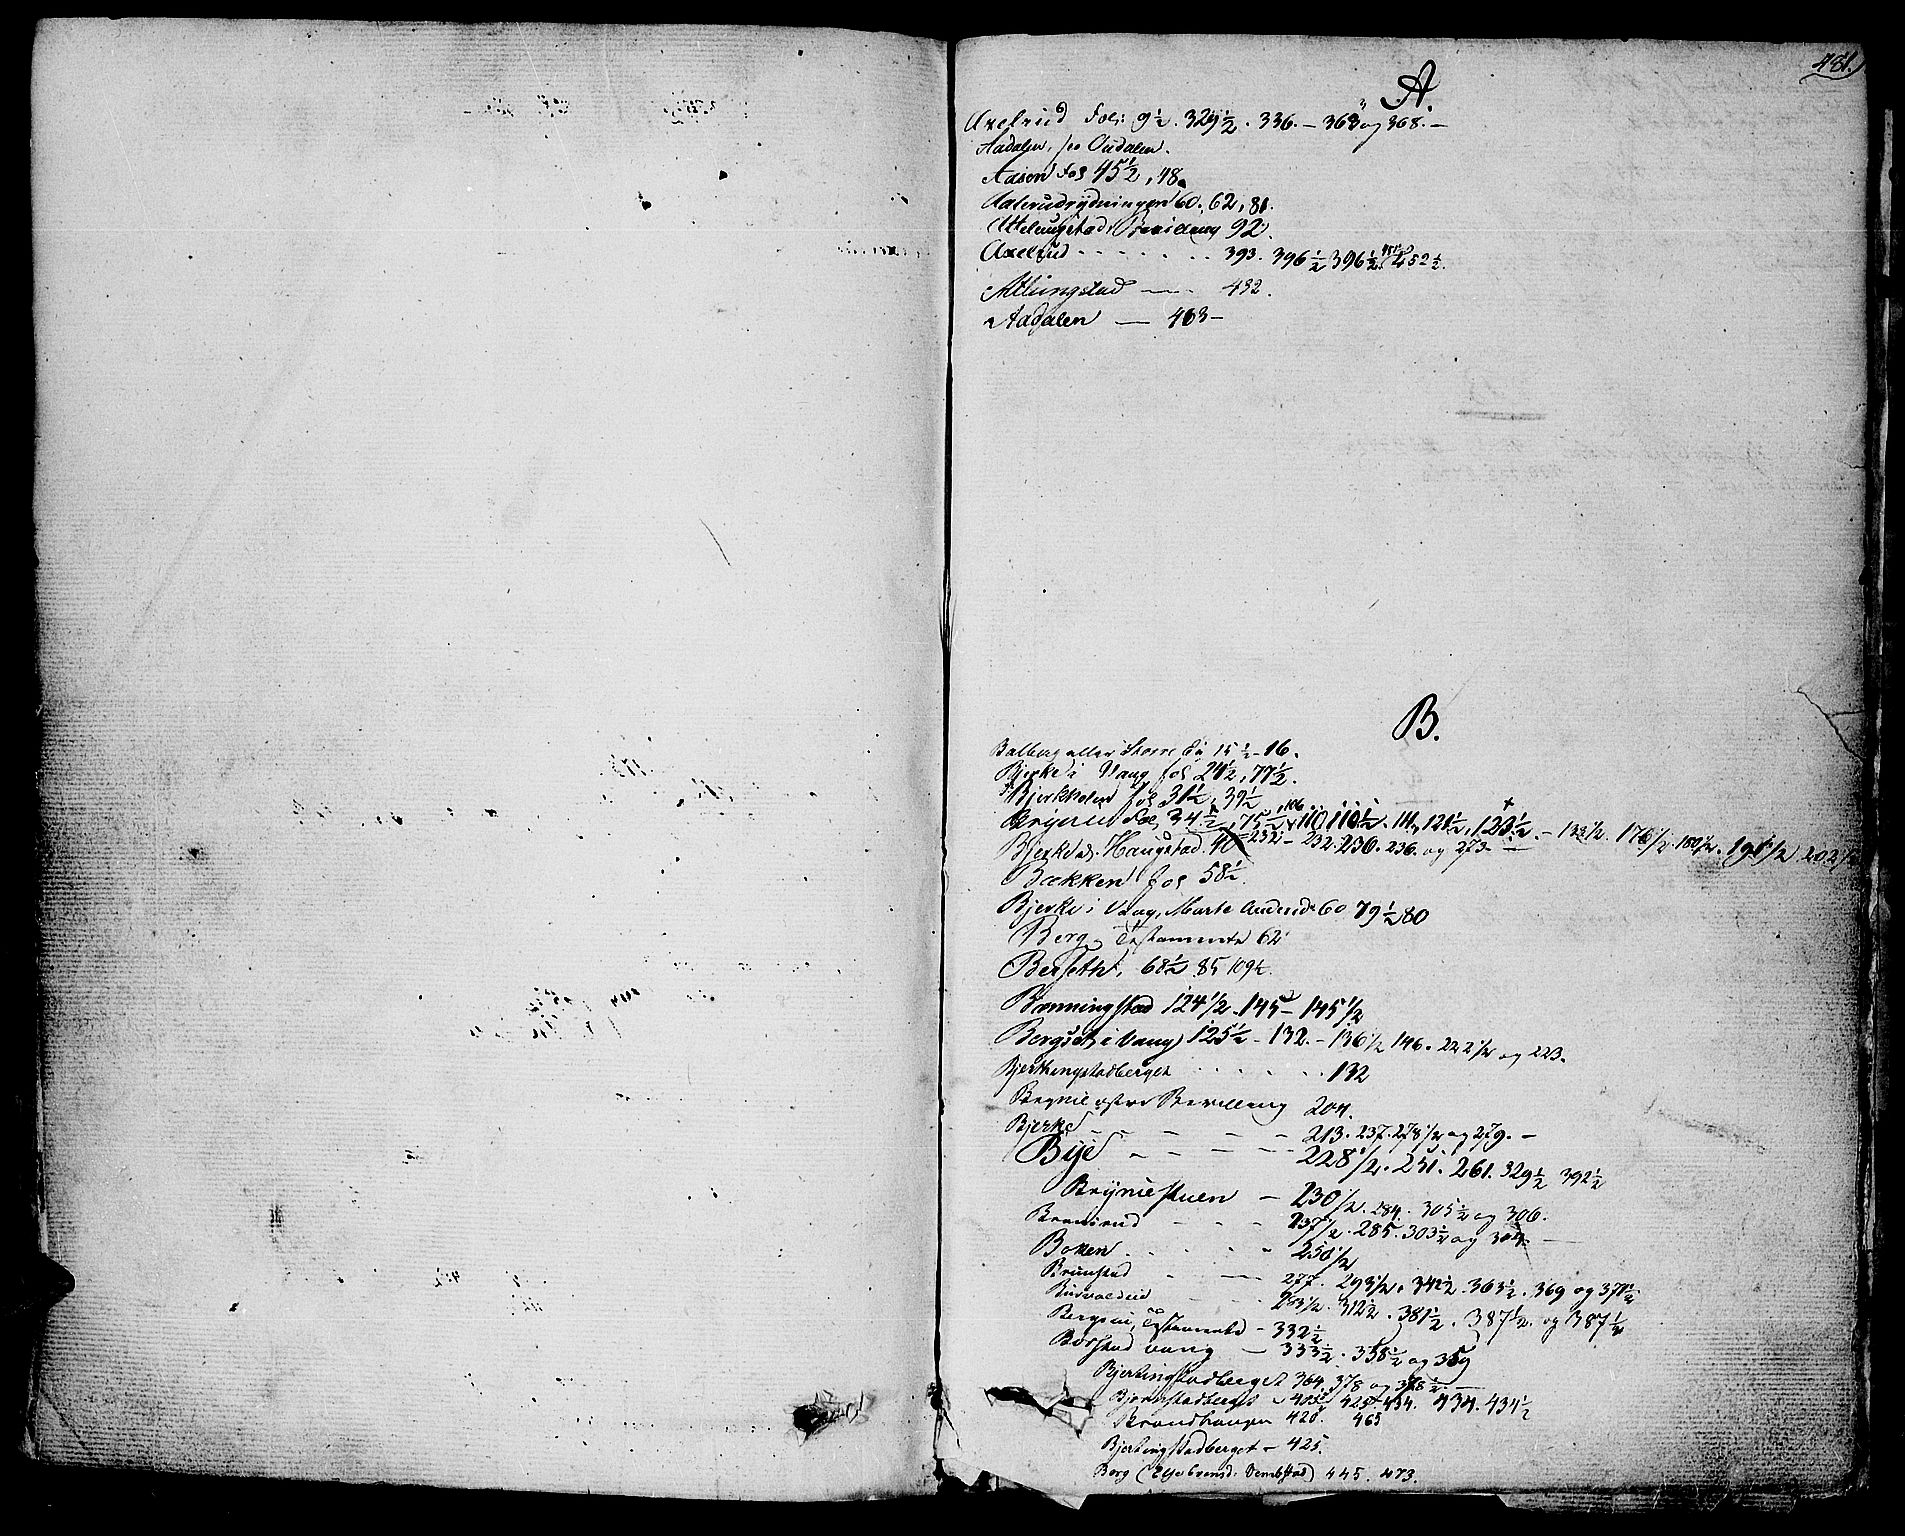 481.
A.
Axelrud Fol: 9½. 329½. 336. — 363 og 368. —
Aadalen, se Oudalen.
Aason fol 45½, 48.
Aalerudrydningen 60., 62, 81.
Attelungstad, Bevilling 92.
Axelrud - - - - - - - 393. 396½ 396½. 452½.
Atlungstad — — 432.
Aadalen — 463 —
B.
Balberg eller Storre fol 15½ — 16.
Bjerke i Vang fol 24½, 77½.
Bjerkholen fol 31½, 39½
Fol. 34½, 75½, 106. 110 110½. 111, 121½, 123½. — 133½. 176½. 180½. 191½ 202½
Bjerke Haugstad, 232½ — 232. 230. 236. og 273. —
Bækken fol 58½.
Bjerke i Vang, Marte Andersd. 60 79½ 80
Berg, Testamente 62
Berseth, 68½ 85 109½.
Bonningstad 124½. 145 — 145½
Bergset i Vang 125½ — 132. — 136½ 146. 222½ og 223.
Bjerkengstadberget - - - - - - 132
østre Bevilling 204.
Bjerke — — — — 213. 237. 278½ og 279. —
Bye — — — — 228½. 251. 261. 329½ 392½
Bryniestuen — 230½. 284. 305½ og 306.
- - - 237½. 285. 303½ og 304. —
Boken - - - - - 250½
Brunstad - — 277. 293½. 342½. 363½. 369 og 371½
283½. 312½. 381½. 387½. og 387½
Testamente — 332½
Bolstad vang — 333½. 358½ og 359
Bjerkingstadberget 364, 378 og 378½. —
Bjernstadberget 405½ 425 434. 434. 434½
Brandhaugen 420. 463
Bjerkingstadberget — 425.
Berg (Else Evensd: Dembstad) 445. 473.